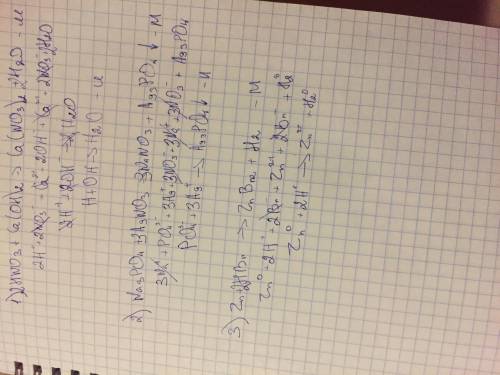 1) 2HNO3 + Ca(OH)2 => Ca(NO3)2 + 2H2O - м
2H⁺ + 2NO3⁻ + Ca²⁺ + 2OH⁻ → Ca²⁺ + 2NO3⁻ + 2H2O
2H⁺ + 2OH⁻ → 2H2O
H + OH => H2O - и
2) Na3PO4 + 3AgNO3 → 3NaNO3 + Ag3PO4↓ - м
3Na⁺ + PO4³⁻ + 3Ag⁺ + 3NO3⁻ → 3Na⁺ + 3NO3⁻ + Ag3PO4
PO4³⁻ + 3Ag⁺ → Ag3PO4↓ - и
3) Zn + 2HBr => ZnBr2 + H2 - м
Zn⁰ + 2H⁺ + 2Br⁻ → Zn²⁺ + 2Br⁻ + H2⁰
Zn⁰ + 2H⁺ → Zn²⁺ + H2⁰